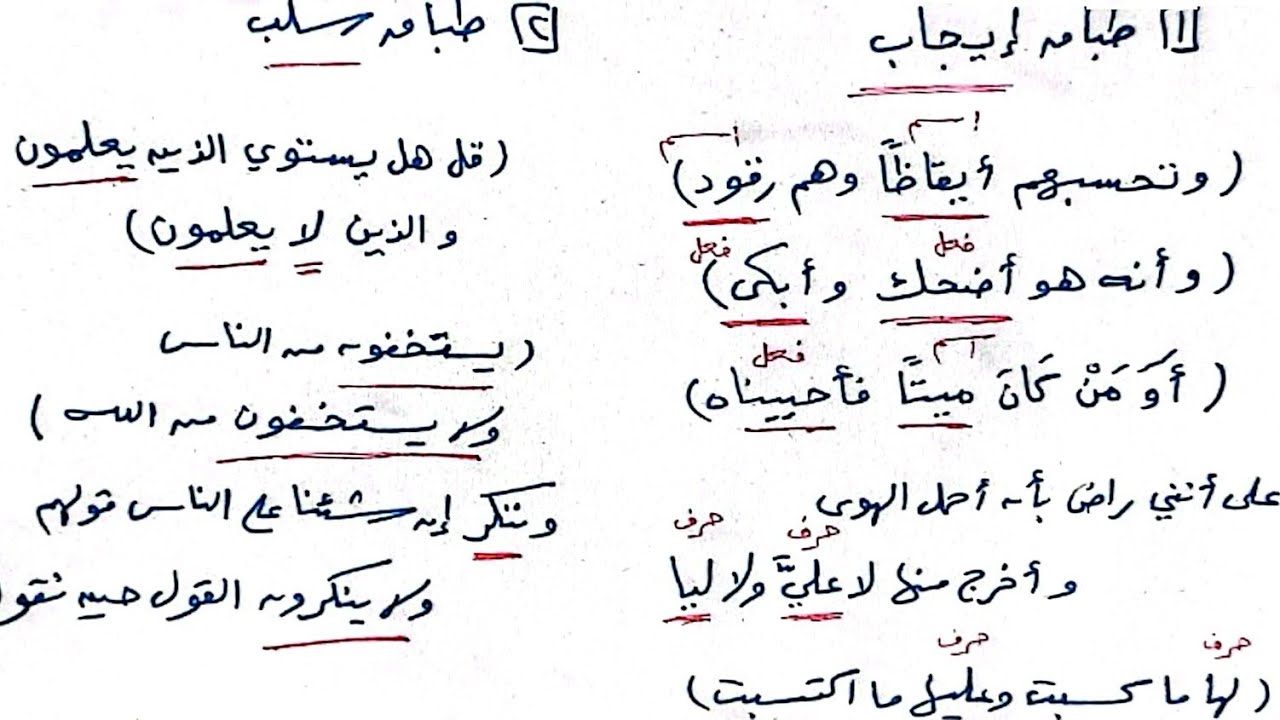 ١ طباق إيجاب
اسم اسم
(وتحسبهم أيقاظًا وهم رقود)
فعل فعل
(وأنه هو أضحك وأبكى)
اسم فعل
(أوَمَنْ كَانَ ميتًا فأحييناه)
على أنني راض بأن أحمل الهوى
حرف حرف
وأخرج منها لا عليَّ ولا ليا
حرف حرف
(لها ما كسبت وعليها ما اكتسبت)
٢ طباق سلب
(قل هل يستوي الذين يعلمون
والذين لا يعلمون)
(يستخفون من الناس
ولا يستخفون من الله)
وننكر إن شئنا على الناس قولهم
ولا ينكرون القول حين نقو